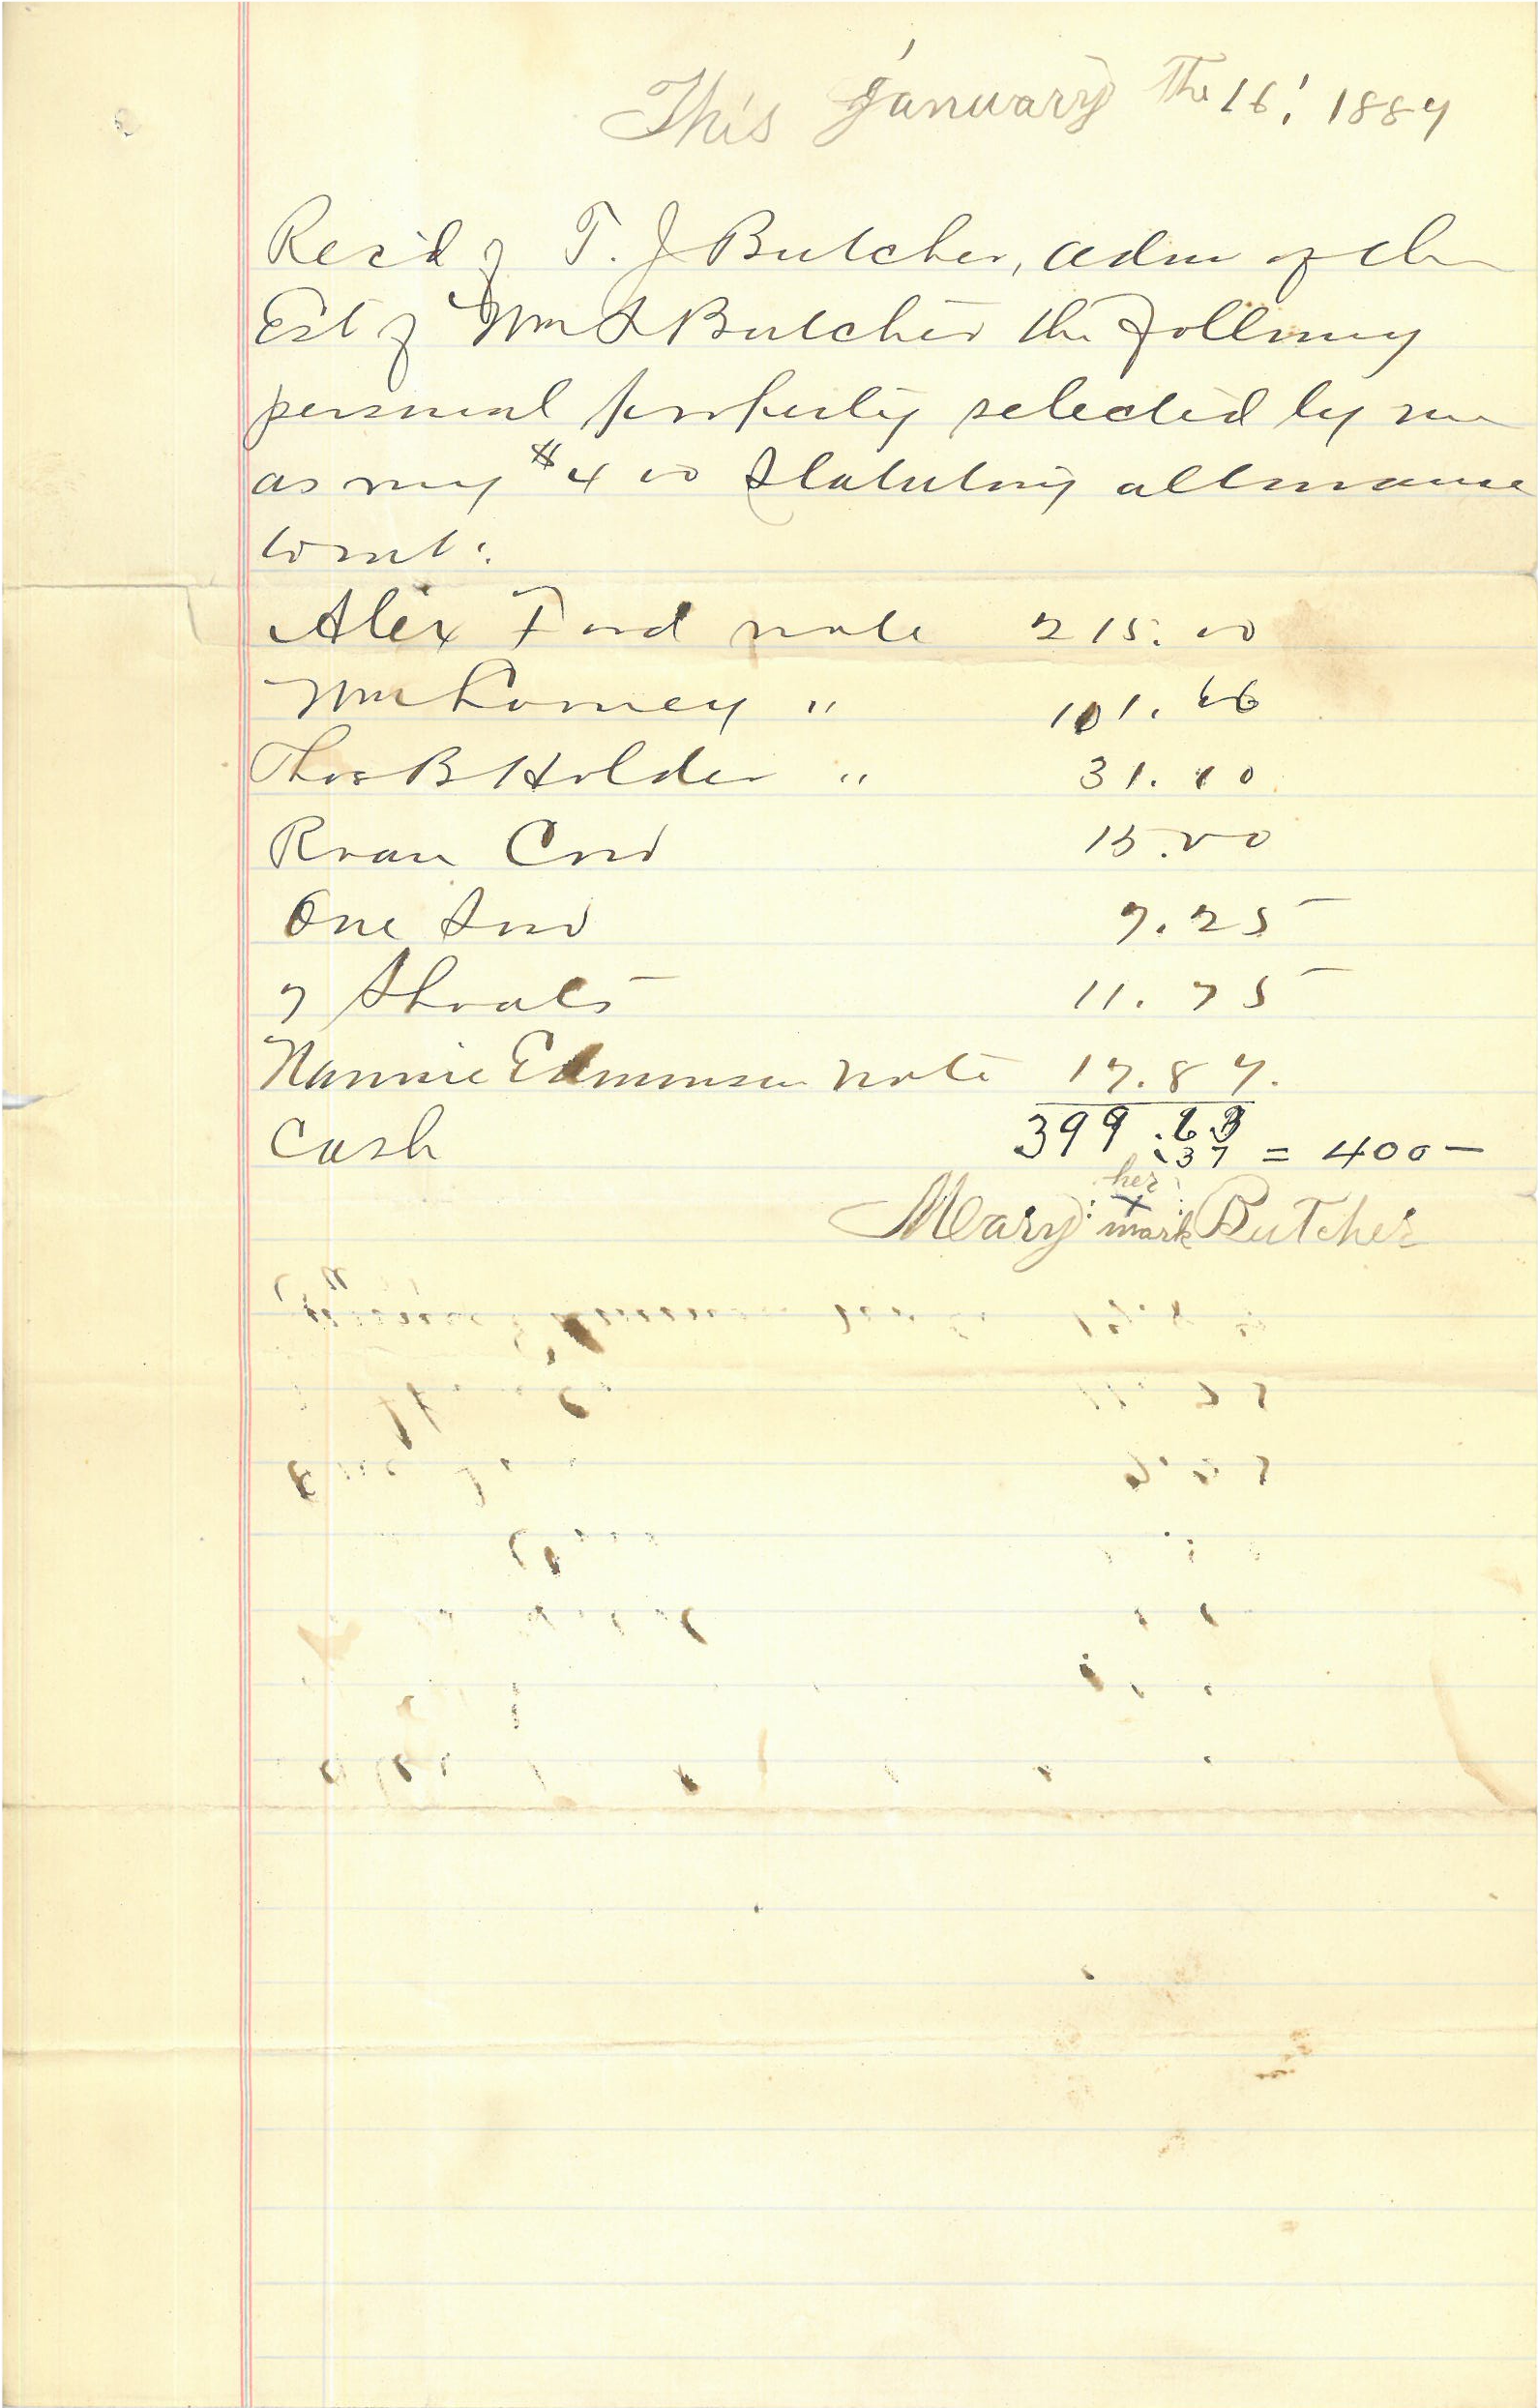 This January The 16, 1889
Rec'd of T. J Butcher, adm of the
Est of Wm S Butcher the following
personal property selected by me
as my $400 Statutory allowance
towit:
Alex Ford note 215.00
Wm " 101.66
Thos B Holder " 31.10
Roan Cow 15.00
One Sow 7.25
7 Shoats 11.75
Nannie Edmonson note 17.87.
399.63
Cash .37 = 400-
her
Mary x Butcher
mark